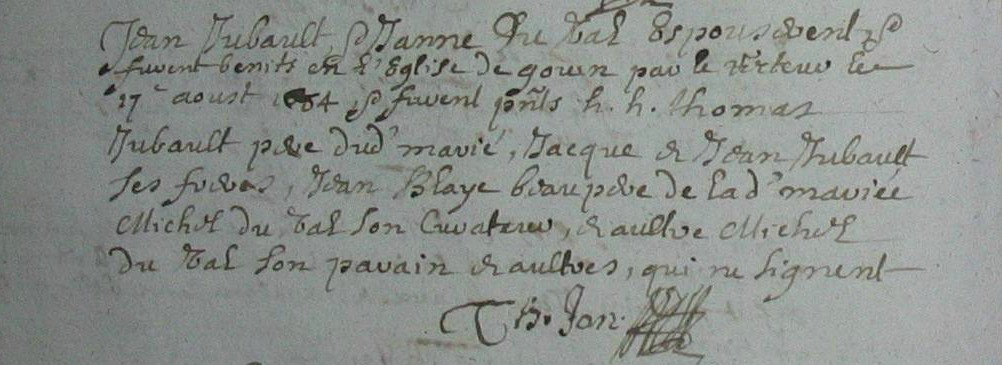 Jean Jubault, & Janne Du Val Espouserent &
furent benits en l'Eglise de goven par le Recteur le
17e aoust 1684 & furent pnts h. h. thomas
Jubault pere dud' marié, Jacque & Jean Jubault
ses freres, Jean Blaye beau pere de lad' mariée
Michel du Val son Curateur, & aultre Michel
du Val son parain & aultres, qui ne signent